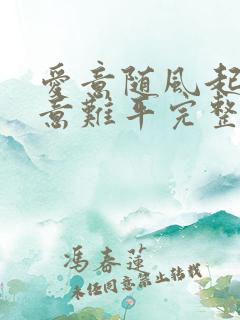 愛意随風起
意難平完整
馮春蓮
未经同意禁止转载